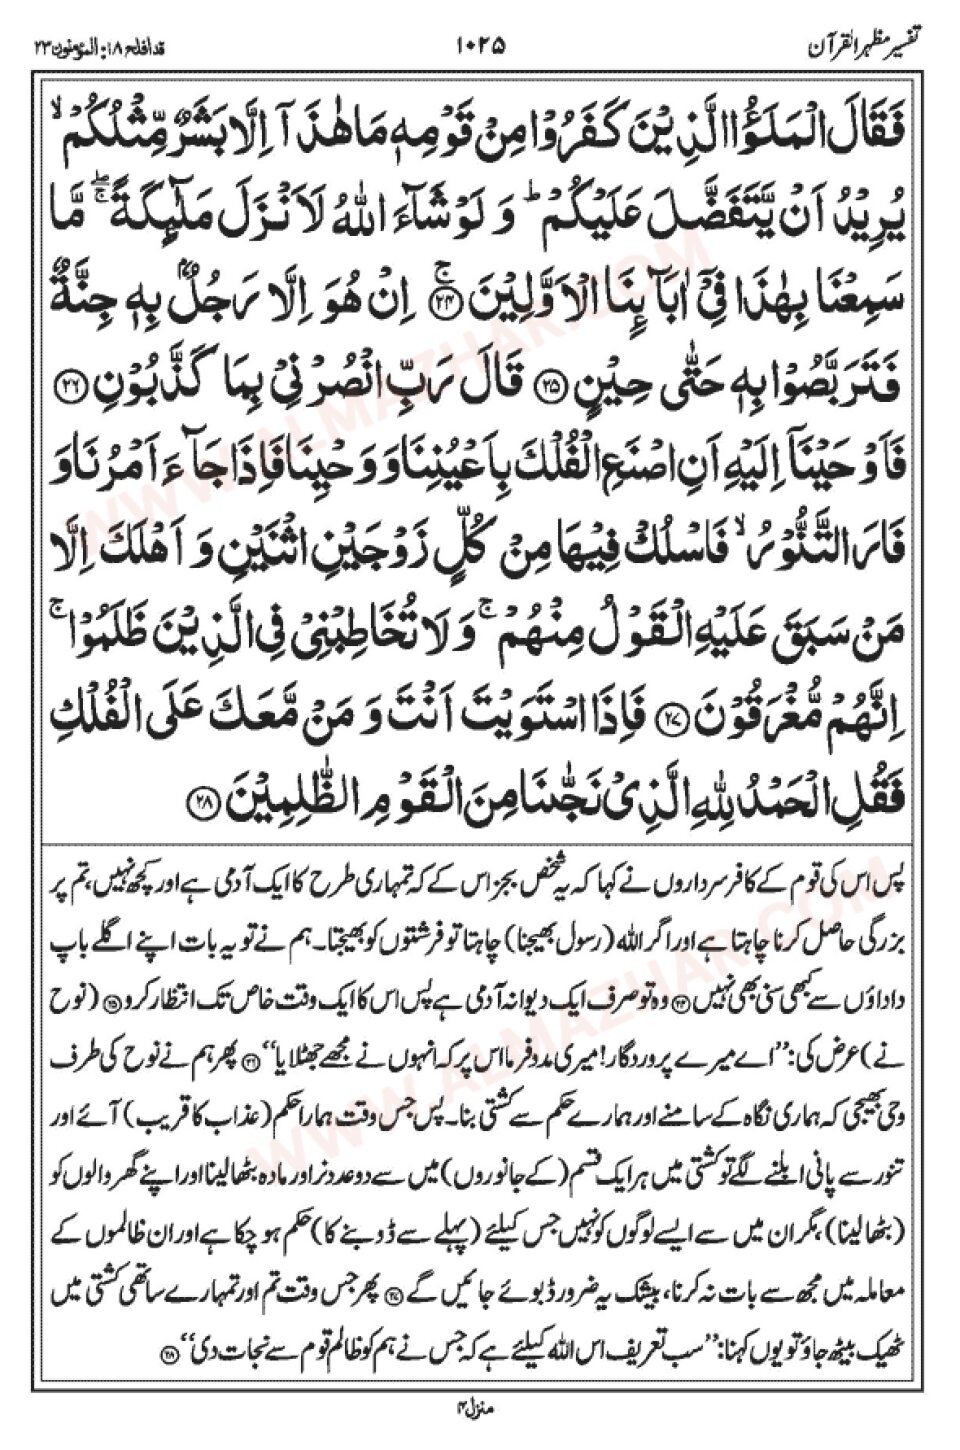 تفسیر مظہر القرآن ۱۰۲۵ قد افلح ۱۸: المؤمنون ۲۳
فَقَالَ الْمَلَؤُا الَّذِیْنَ كَفَرُوْا مِنْ قَوْمِهٖ مَا هٰذَاۤ اِلَّا بَشَرٌ مِّثْلُكُمْ ۙ
یُرِیْدُ اَنْ یَّتَفَضَّلَ عَلَیْكُمْ ؕ وَ لَوْ شَآءَ اللّٰهُ لَاَنْزَلَ مَلٰٓىِٕكَةً ۖۚ مَّا
سَمِعْنَا بِهٰذَا فِیْۤ اٰبَآىِٕنَا الْاَوَّلِیْنَ ۚ﴿۲۴﴾ اِنْ هُوَ اِلَّا رَجُلٌۢ بِهٖ جِنَّةٌ
فَتَرَبَّصُوْا بِهٖ حَتّٰی حِیْنٍ ﴿۲۵﴾ قَالَ رَبِّ انْصُرْنِیْ بِمَا كَذَّبُوْنِ ﴿۲۶﴾
فَاَوْحَیْنَاۤ اِلَیْهِ اَنِ اصْنَعِ الْفُلْكَ بِاَعْیُنِنَا وَ وَحْیِنَا فَاِذَا جَآءَ اَمْرُنَا وَ
فَارَ التَّنُّوْرُ ۙ فَاسْلُكْ فِیْهَا مِنْ كُلٍّ زَوْجَیْنِ اثْنَیْنِ وَ اَهْلَكَ اِلَّا
مَنْ سَبَقَ عَلَیْهِ الْقَوْلُ مِنْهُمْ ۚ وَ لَا تُخَاطِبْنِیْ فِی الَّذِیْنَ ظَلَمُوْا ۚ
اِنَّهُمْ مُّغْرَقُوْنَ ﴿۲۷﴾ فَاِذَا اسْتَوَیْتَ اَنْتَ وَ مَنْ مَّعَكَ عَلَی الْفُلْكِ
فَقُلِ الْحَمْدُ لِلّٰهِ الَّذِیْ نَجّٰىنَا مِنَ الْقَوْمِ الظّٰلِمِیْنَ ﴿۲۸﴾
پس اس کی قوم کے کافر سرداروں نے کہا کہ یہ شخص بجز اس کے کہ تمہاری طرح کا ایک آدمی ہے اور کچھ نہیں، تم پر
بزرگی حاصل کرنا چاہتا ہے اور اگر اللہ (رسول بھیجنا) چاہتا تو فرشتوں کو بھیجتا۔ ہم نے تو یہ بات اپنے اگلے باپ
داداؤں سے کبھی سنی بھی نہیں ﴿۲۴﴾ وہ تو صرف ایک دیوانہ آدمی ہے پس اس کا ایک وقت خاص تک انتظار کرو ﴿۲۵﴾ (نوح
نے) عرض کی: ”اے میرے پروردگار! میری مدد فرما اس پر کہ انہوں نے مجھے جھٹلایا“ ﴿۲۶﴾ پھر ہم نے نوح کی طرف
وحی بھیجی کہ ہماری نگاہ کے سامنے اور ہمارے حکم سے کشتی بنا۔ پس جس وقت ہمارا حکم (عذاب کا قریب) آئے اور
تنور سے پانی ابلنے لگے تو کشتی میں ہر ایک قسم (کے جانوروں) میں سے دو عدد نر اور مادہ بٹھا لینا اور اپنے گھر والوں کو
(بٹھا لینا)، مگر ان میں سے ایسے لوگوں کو نہیں جس کیلئے (پہلے سے ڈوبنے کا) حکم ہو چکا ہے اور ان ظالموں کے
معاملہ میں مجھ سے بات نہ کرنا، بیشک یہ ضرور ڈبوئے جائیں گے ﴿۲۷﴾ پھر جس وقت تم اور تمہارے ساتھی کشتی میں
ٹھیک بیٹھ جاؤ تو یوں کہنا: ”سب تعریف اس اللہ کیلئے ہے کہ جس نے ہم کو ظالم قوم سے نجات دی“ ﴿۲۸﴾
منزل ۴
WWW.ALMAZHAR.COM
WWW.ALMAZHAR.COM